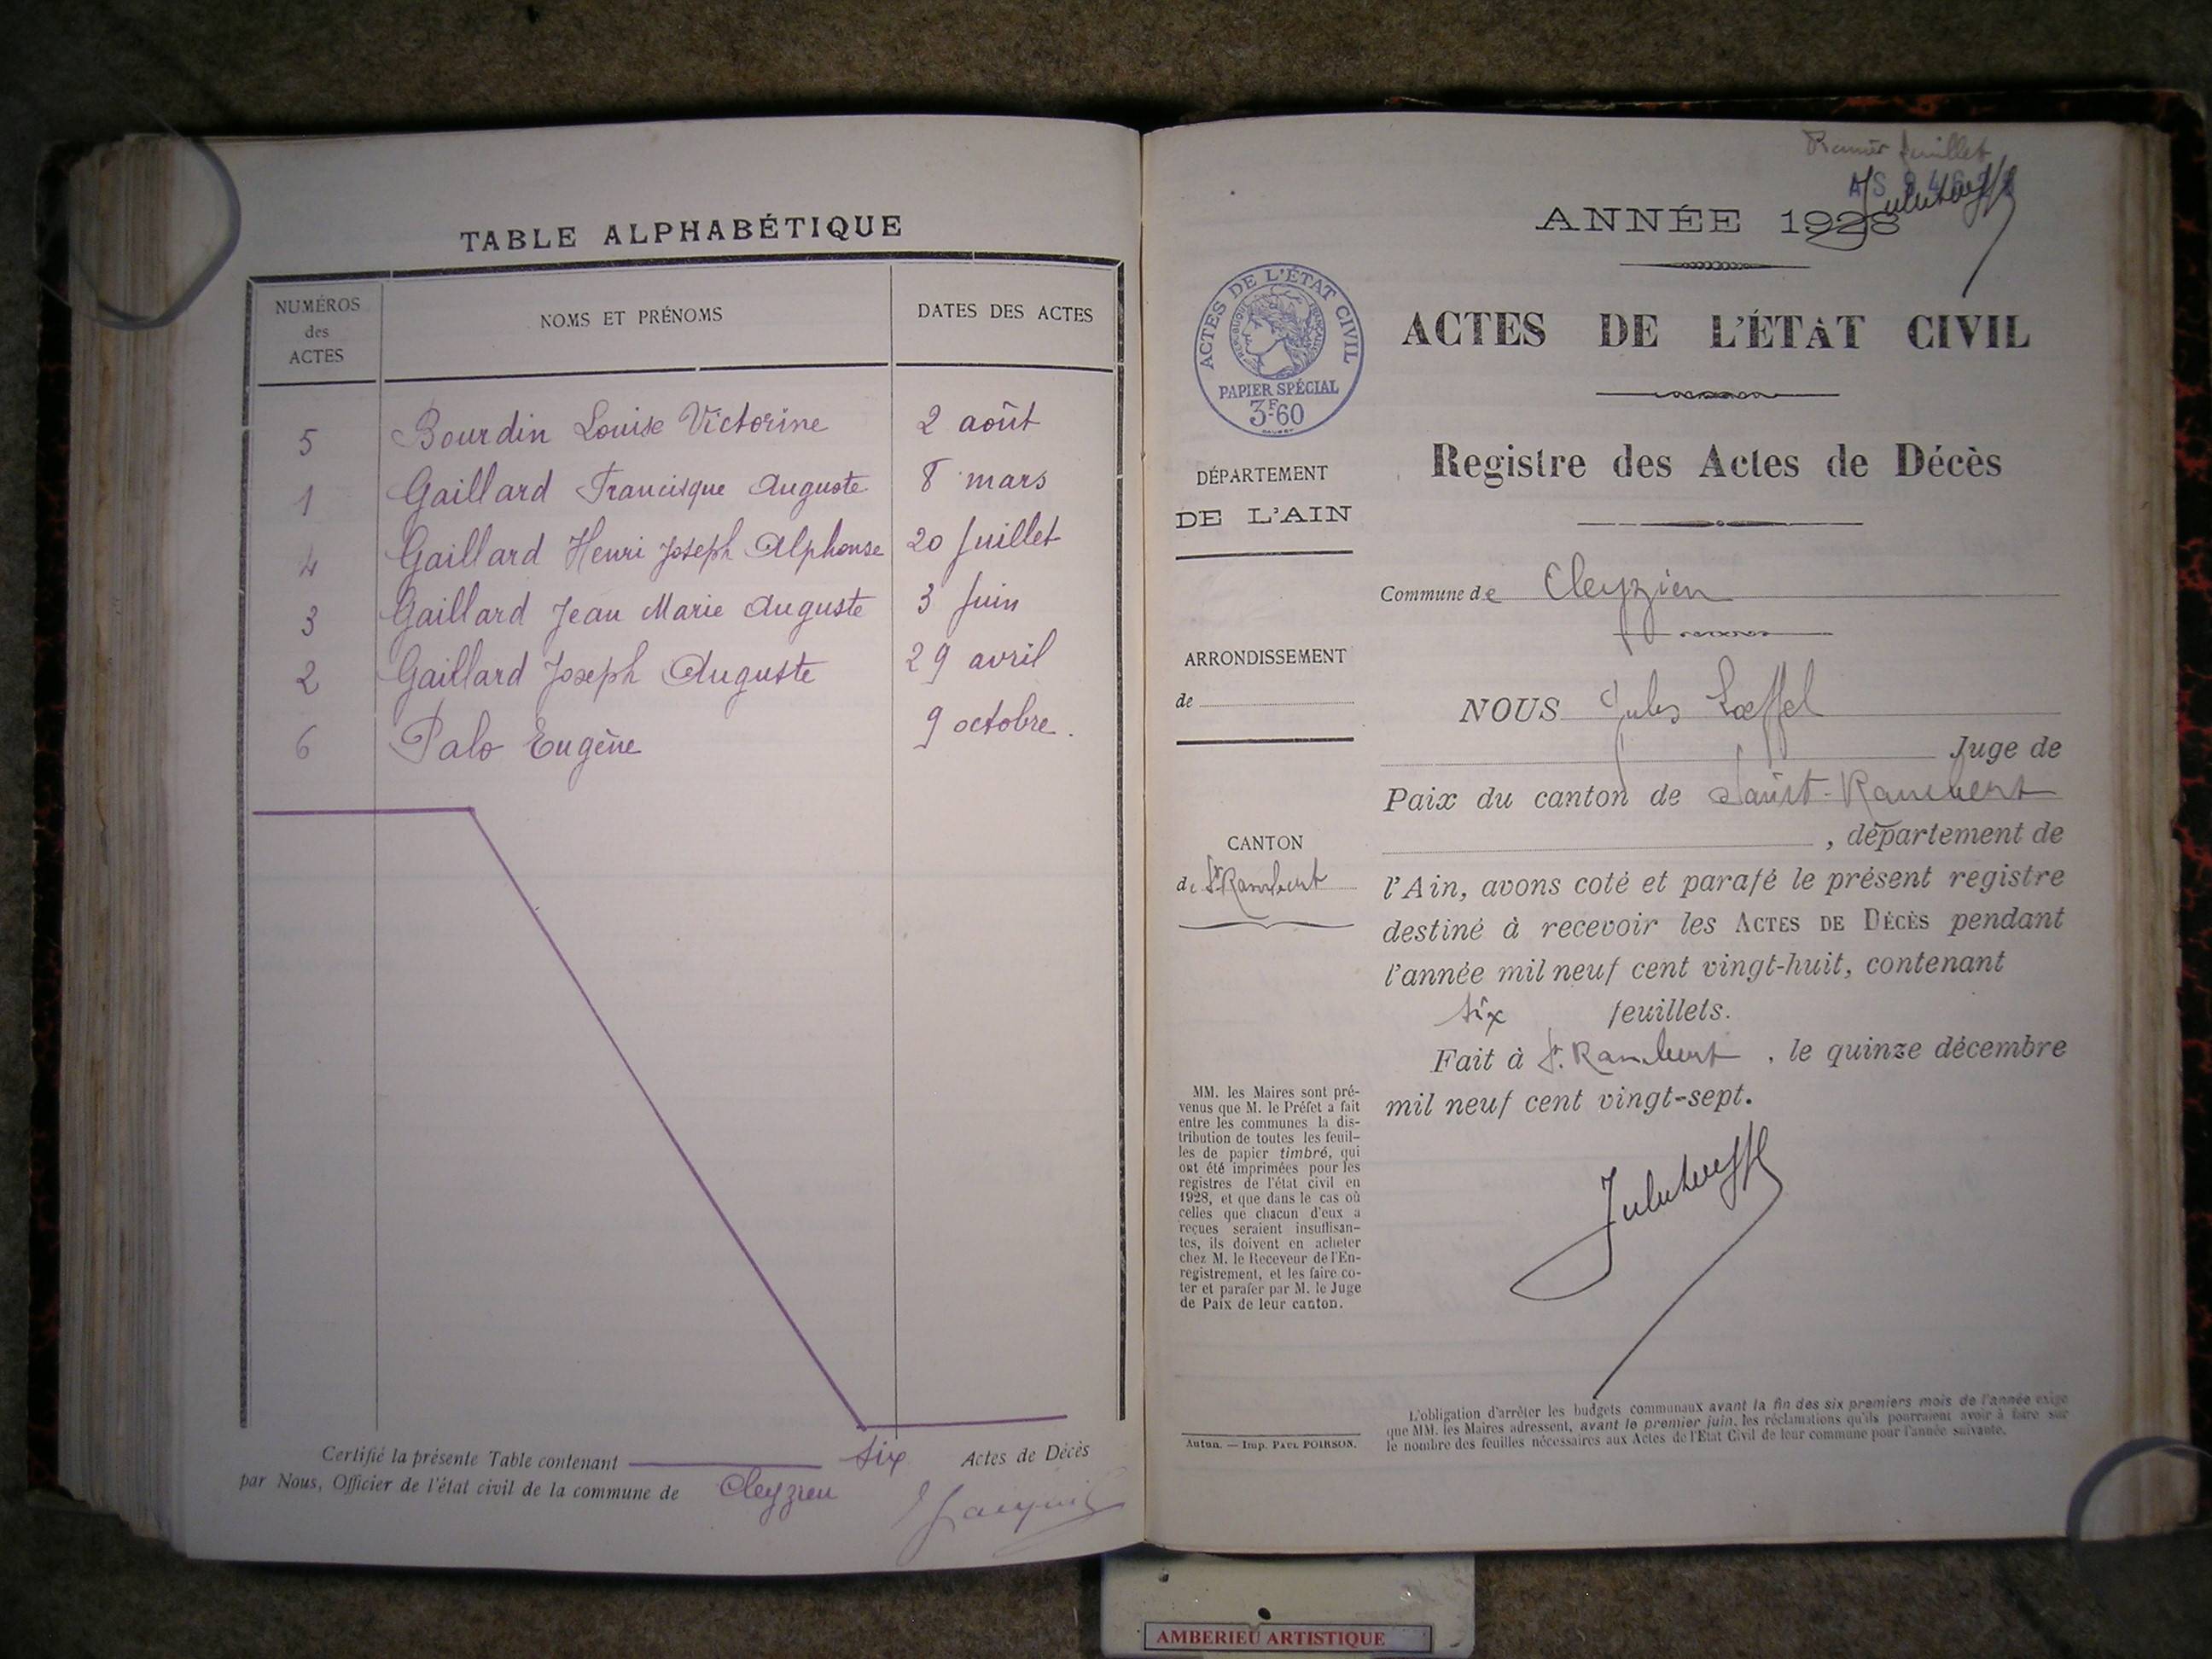 TABLE ALPHABÉTIQUE
NUMÉROS
des
ACTES
NOMS ET PRÉNOMS
DATES DES ACTES
5 Bourdin Louise Victorine 2 août
1 Gaillard Francisque Auguste 8 mars
4 Gaillard Henri Joseph Alphonse 20 Juillet
3 Gaillard Jean Marie Auguste 3 Juin
2 Gaillard Joseph Auguste 29 avril
6 Palo Eugène 9 octobre.
Certifié la présente Table contenant six Actes de Décès
par Nous, Officier de l'état civil de la commune de Cleyzieu
Premier feuillet
ANNÉE 1928
ACTES DE L'ÉTAT CIVIL
RÉPUBLIQUE FRANÇAISE
PAPIER SPÉCIAL
3F60
ACTES DE L'ÉTAT CIVIL
Registre des Actes de Décès
DÉPARTEMENT
DE L'AIN
ARRONDISSEMENT
de
CANTON
de St Rambert
Commune de Cleyzieu
NOUS Jules Lœffel
Juge de
Paix du canton de Saint-Rambert
, département de
l'Ain, avons coté et parafé le présent registre
destiné à recevoir les ACTES DE DÉCÈS pendant
l'année mil neuf cent vingt-huit, contenant
six feuillets.
Fait à St. Rambert , le quinze décembre
mil neuf cent vingt-sept.
MM. les Maires sont pré-
venus que M. le Préfet a fait
entre les communes la dis-
tribution de toutes les feuil-
les de papier timbré, qui
ont été imprimées pour les
registres de l'état civil en
1928, et que dans le cas où
celles que chacun d'eux a
reçues seraient insuffisan-
tes, ils doivent en acheter
chez M. le Receveur de l'En-
registrement, et les faire co-
ter et parafer par M. le Juge
de Paix de leur canton.
Autun. — Imp. PAUL POIRSON.
L'obligation d'arrêter les budgets communaux avant la fin des six premiers mois de l'année exige
que MM. les Maires adressent, avant le premier juin, les réclamations qu'ils pourraient avoir à faire sur
le nombre des feuilles nécessaires aux Actes de l'Etat Civil de leur commune pour l'année suivante.
AMBERIEU ARTISTIQUE